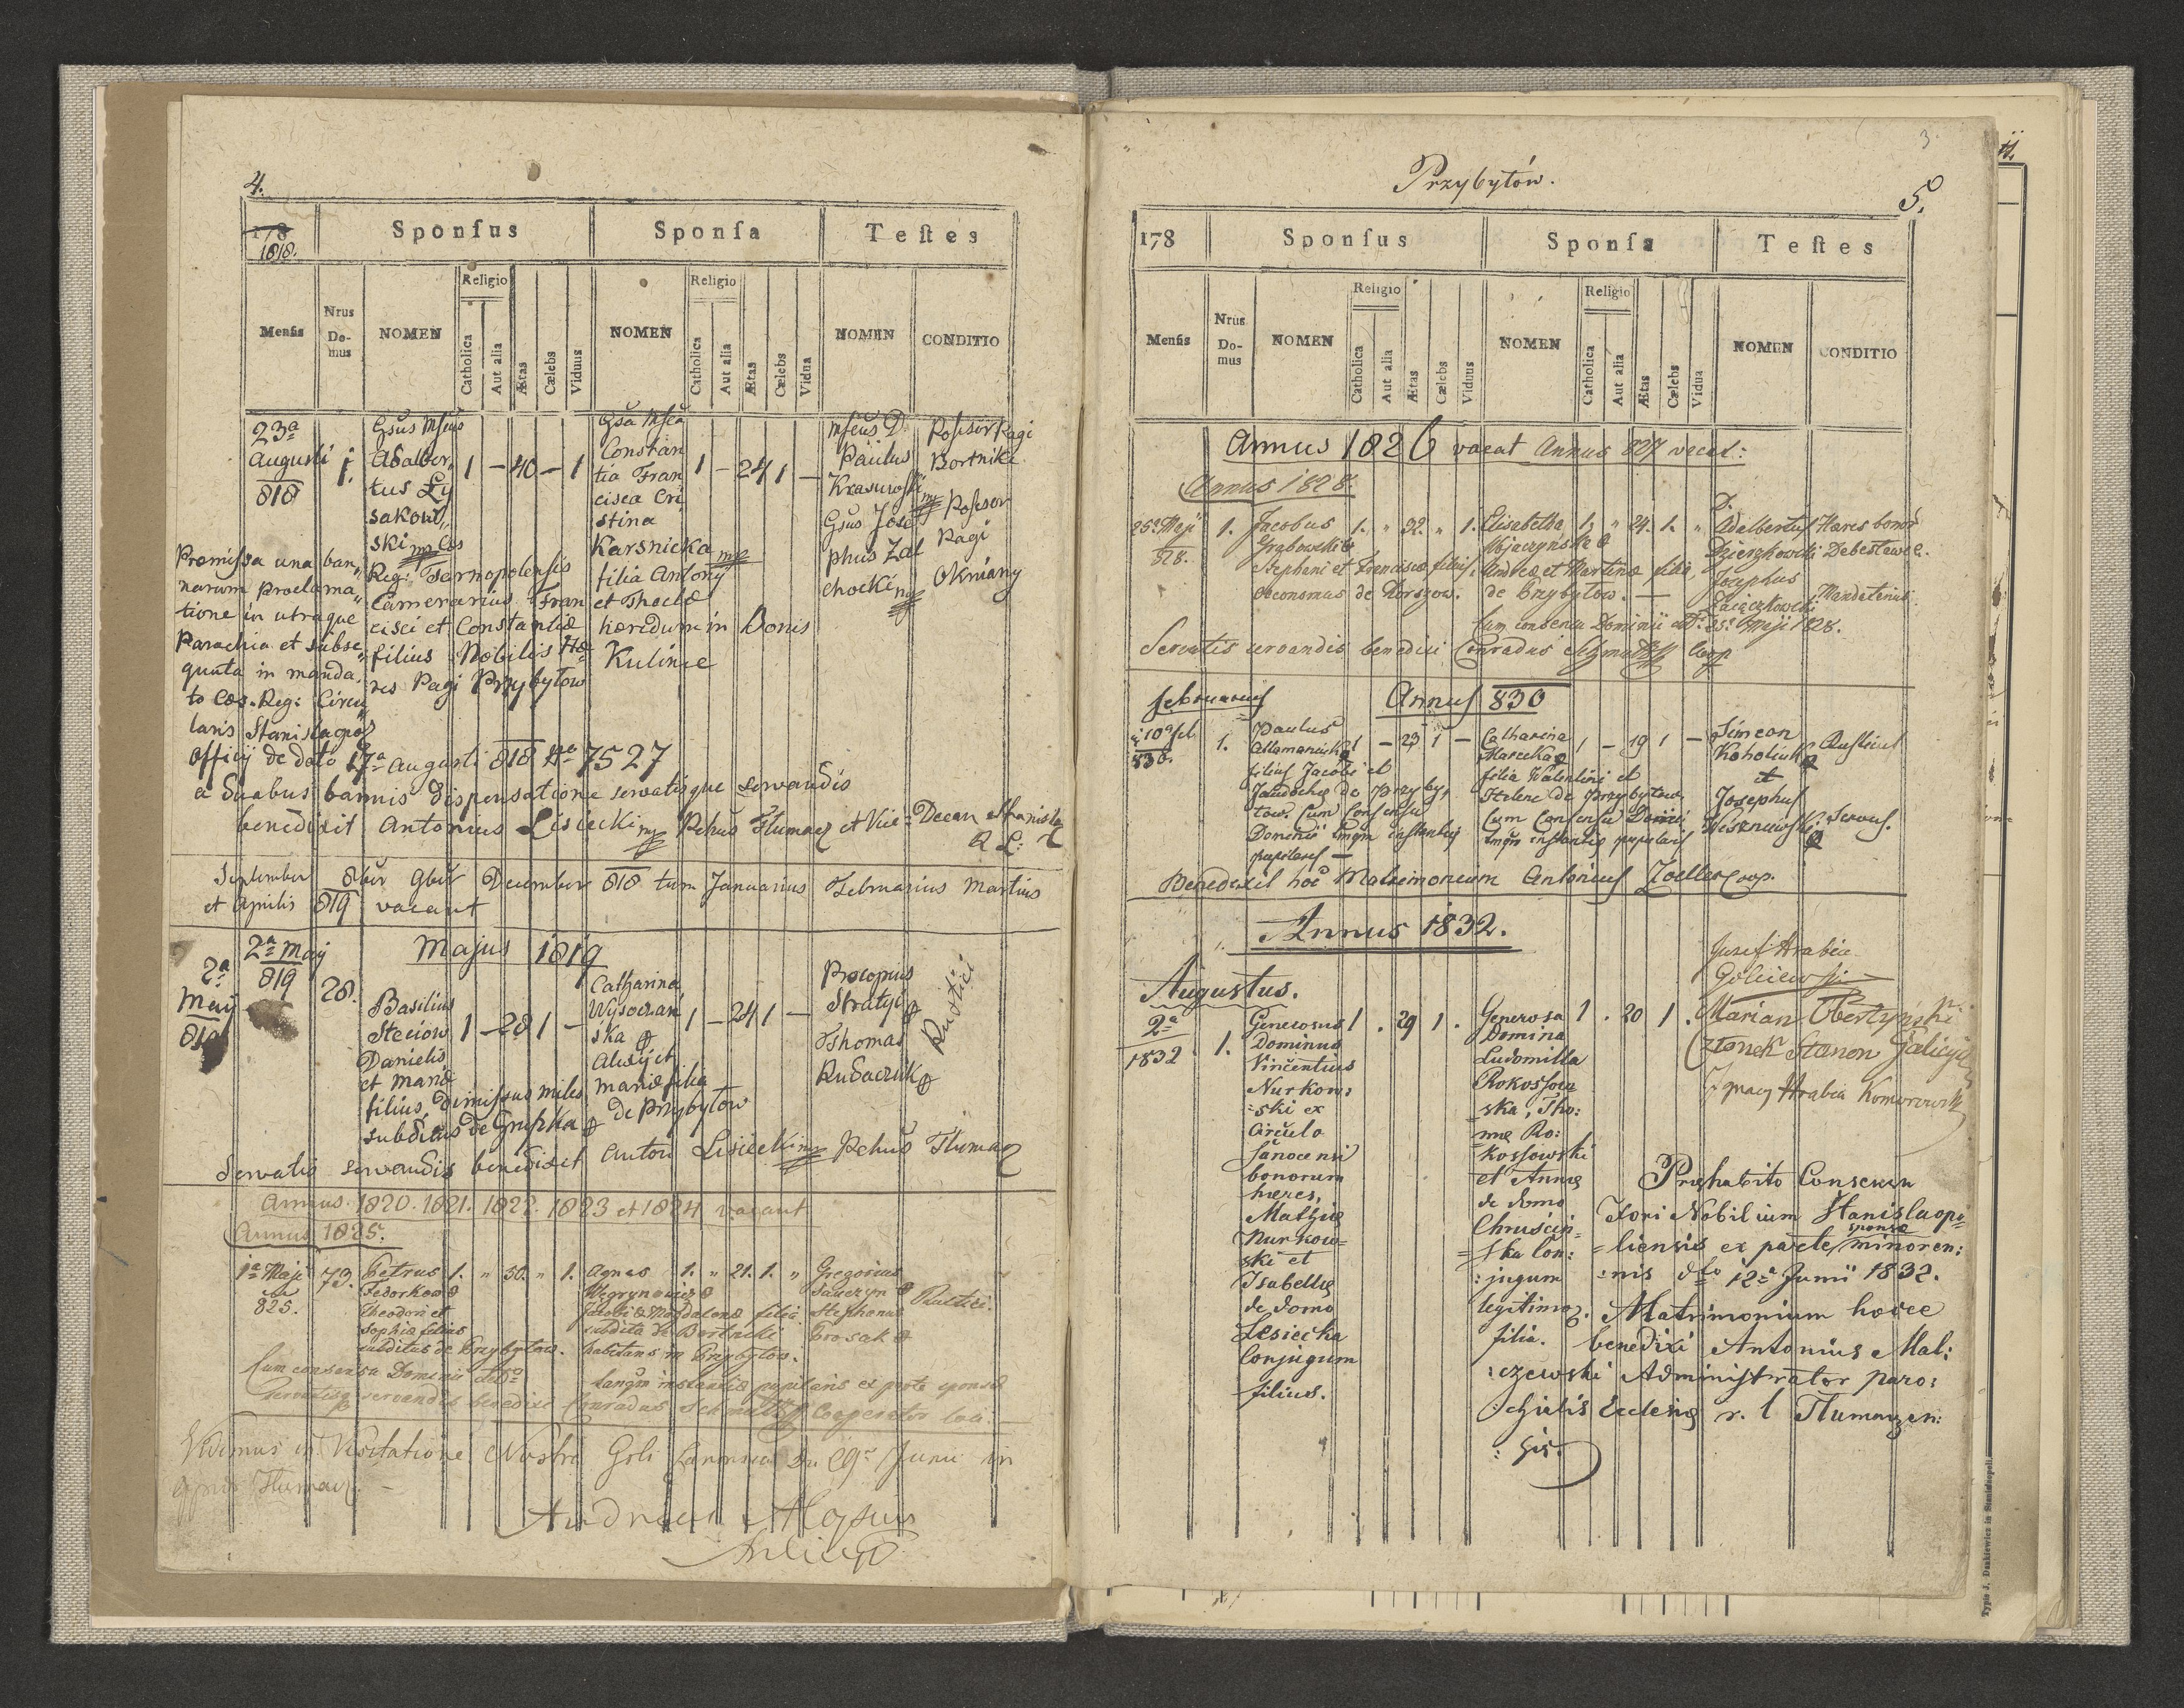 4.
178
1818.
Sponſus Sponſa Teſtes
Menſis
Nrus Domus
NOMEN
Religio
Catholica
Aut alia
Ætas
Cælebs
Viduus
NOMEN
Religio
Catholica
Aut alia
Ætas
Cælebs
Vidua
NOMEN
CONDITIO
23a
Augusti
818
1.
Adalber„
tus Ly
sakow„
ski
Reg: Tarnopolensis
Camerarius Fran
cisci et Constantiæ
filius Nobilis Hæ
res Pagi Przybytow
1 – 40 – 1
Constan
tia Fran
cisca Cri
stina
Karsnicka
filia Antonij
et Theclæ
hæredum in Bonis
Kulince
1 – 24 1 –
Paulus
Krasuwski
Gsus Jose
phus Zal
chocki
Possesor Pagi
Bortniki
Possesor
Pagi
Okniany
Præmissa una ban„
norum Proclama„
tione in utraque
Parochia et subse„
quuta in manda„
to Cæs. Reg: Circu
laris Stanislapol
Officij de dato 17a Augusti 818 No 7527
a duabus bannis dispensatione servatisque servandis
benedixit Antonius Lisiecki Tlumacz et Vice-Decan Stanisla
R L:
September 8ber 9ber December 818 tum Januarius Februarius Martius
et Aprilis 819 vacant
Majus 1819
2a Maij
819
2a
Maij
819
28.
Basilius
Steciow
Danielis
et Mariæ
filius Dimissus miles
subditus de Gruszka
1 – 28 1 –
Catharina
Wysoczań
ska
Alexij et
Mariæ filia
de Przybytow
1 – 24 1 –
Procopius
Stratyi
Thomas
Rudaczuk
Rustici
Servatis servandis benedixit Anton Lisiecki Tlumacz
Annus 1820. 1821. 1822. 1823 et 1824 vacant
Annus 1825.
1a Maji
825.
73.
Petrus
Fedorkow
Theodori et
Sophiæ filius
subditus de Przybytow.
1. „ 30. „ 1.
Agnes
Węgrynowicz
Jacobi & Magdalenæ filia
subdita de Bortniki
habitans in Przybytow.
1. „ 21. 1. „
Gregorius
Stephanus
Prosak
Rustici.
Cum consensu Dominii
tanqm instantiæ pupilaris ex parte sponsæ
servatisq servandis benedixi Conradus Schmutz Cooperator loci.
Vidimus in Visitatione Nostra Gnli Canonica Die 29a Junii in
Tlumacz. –
Andreas Aloysius
Ankwicz
3.
Przybytów.
5.
178
Sponſus Sponſa Teſtes
Menſis
Nrus Domus
NOMEN
Religio
Catholica
Aut alia
Ætas
Cælebs
Viduus
NOMEN
Religio
Catholica
Aut alia
Ætas
Cælebs
Vidua
NOMEN
CONDITIO
Annus 1826 vacat Annus 827 vacat:
Annus 1828.
25a Maji
828.
1.
Jacobus
Grabowski
Stephani et Franciscæ filius,
oeconomus de Korszow.
1. „ 32. „ 1.
Elisabetha
Wojaczyńska
Andreæ et Martinæ filia,
de Przybytow. –
1. „ 24. 1. „
D.
Adalbertus
Dzierzkowski
Josephus
Zajączkowski
Hæres bonor
Debeslawce.
Mandatarius.
Cum consensu Dominii ddt: 25a Maji 1828.
Servatis servandis benedixi Conradus Schmutz Coop
Februarius
Annus 830
10a
830.
1.
Paulus
Adamaniuk
filius Jacobi et
Jaudochæ de Przyby„
tow. Cum Consensu
Dominii tmqm instantiæ
pupilaris –
1 – 23 1 –
Catharina
Marecka
filia Valentini et
Helenæ de Przybytow
Cum Consensu Dominii
tmqm instantiæ pupilaris
1 – 19 1 –
Simeon
Koholiuk
et
Josephus
Wiszniewski
Rusticus
Servus.
Benedixit hoc Matrimonium Antonius Zoeller Coop.
Annus 1832.
Augustus.
2a
1832.
1.
Generosus
Dominus
Vincentius
Nurkow:
:ski ex
Circulo
Sanocensi
bonorum
hæres,
Mathiæ
Nurkow=
ski et
Isabellæ
de domo
Lesiecka
Conjugum
filius.
1 . 29 1 .
Generosa
Domina
Ludomilla
Rokossow
ska, Tho:
mæ Ro:
kossowski
et Annæ
de domo
Chruściń=
=ska Con:
:jugum
legitimor.
filia.
1 . 20 1 .
Jozef Hrabia
Golejewski
Marian Obertyński
Członek Stanow Galicyi
Ignacy Hrabia Komorowski
Præhabito Consensu
Fori Nobilium Stanislaopo=
=liensis ex parte sponsæ minoren:
:nis dto 12a Junii 1832.
Matrimonium hocce
benedixi Antonius Mal:
:czewski Administrator paro:
:chialis Ecclesiæ r. l Tlumaczen:
:sis.
Typis J. Dankiewicz in Stanislaopoli.